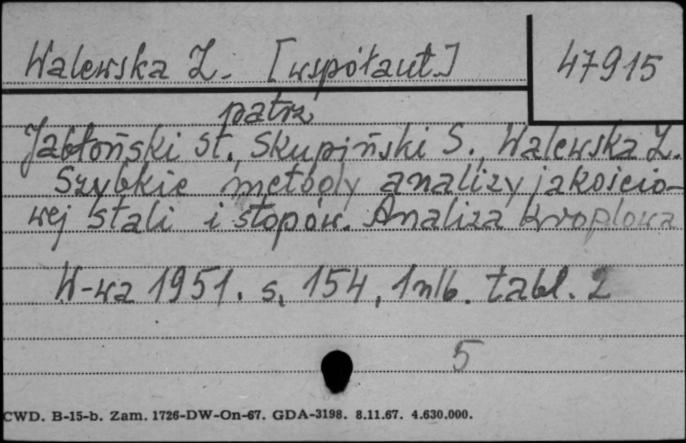 Walewska Z. [współaut.]
47915
patrz
Jabłoński St., Skupiński S., Walewska Z.
Szybkie metody analizy jakościo-
wej stali i stopów. Analiza kroplowa
W-wa 1951. s. 154, 1 nlb. tabl. 2
5
CWD. B-15-b. Zam. 1726-DW-On-67. GDA-3198. 8.11.67. 4.630.000.